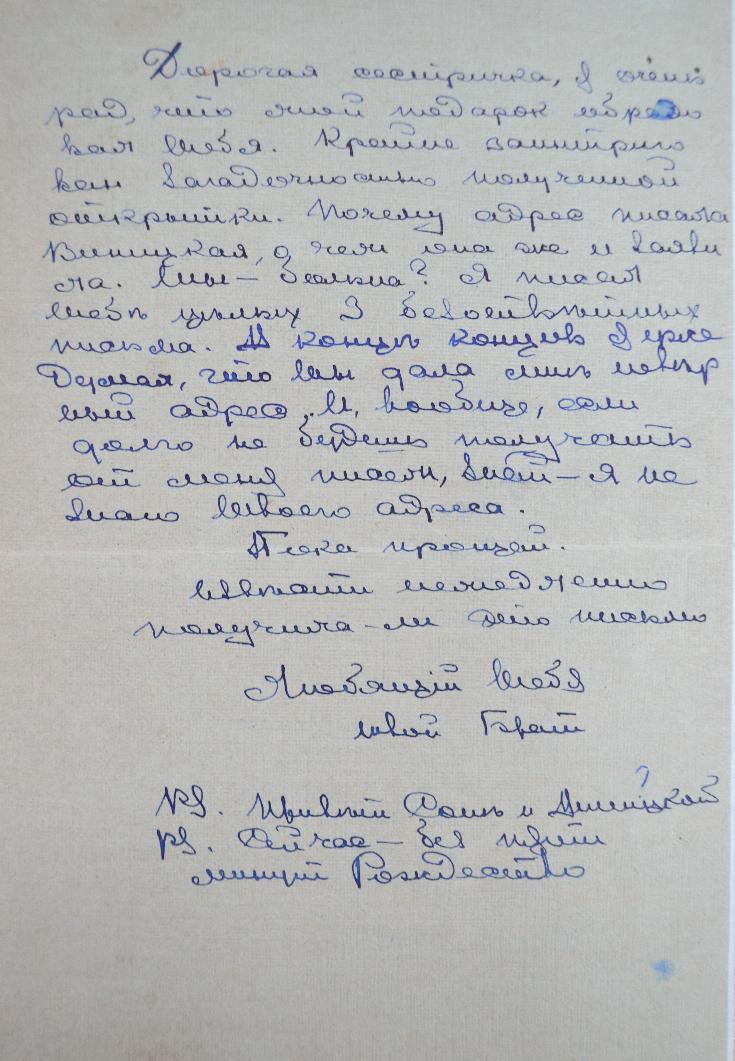 Дорогая сестричка, я очень
рад, что мой подарок обрадо
вал тебя. Крайне заинтриго
ван загадочностью полученной
открытки. Почему адрес писала
Виницкая, о чем она же и заяви
ла. Ты – больна? Я писал
тебѣ цѣлых 3 безотвѣтных
письма. В концѣ концов я уже
Думал, что ты дала мнѣ невѣр
ный адрес. И, вообще, если
долго не будешь получать
от меня писем, знай – я не
знаю твоего адреса.
Пока прощай.
Извѣсти немедленно
получила-ли это письмо
Любящій тебя
твой Брат
PS. Привѣт Сонѣ и
PS. Сейчас – без пяти
минут Рождество